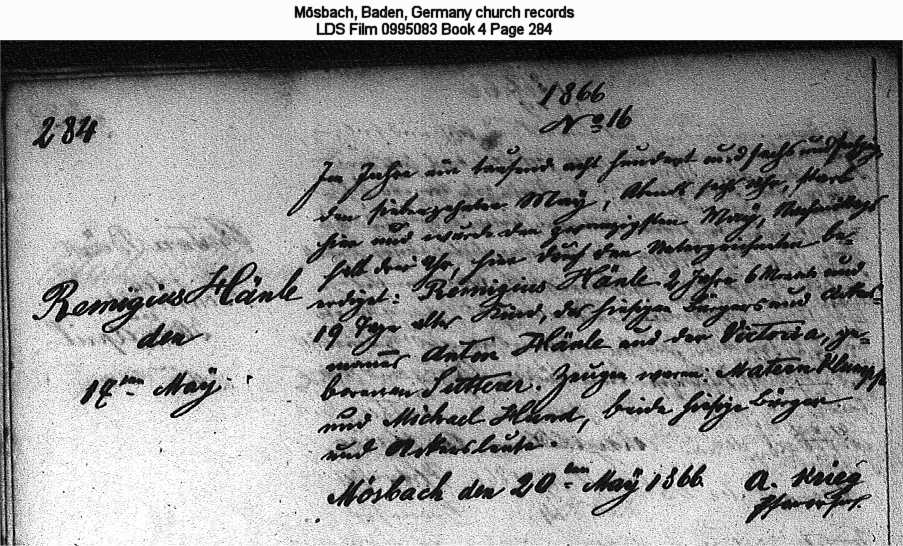 Mösbach, Baden, Germany church records
LDS Film 0995083 Book 4 Page 284
284
1866
No 16
Im Jahre ein tausend acht hundert und sechs und sechzig,
den siebenzehnten May, Abends sechs Uhr, starb
hier und wurde den zwanzigsten May, Nachmittags
halb drei Uhr, hier durch den Unterzeichneten be-
erdiget: Remigius Hänle 2 Jahre 6 Monate und
19 Tage altes Kind, des hiesigen Bürgers und Ackers-
manns Anton Hänle und der Victoria, ge-
borenen Sutterer. Zeugen waren: Matern Klumpp
und Michael Hund, beide hiesige Bürger
und Ackersleute.
Mösbach den 20ten Maÿ 1866
A. Krieg
Remigius Hänle
den
17ten Maÿ